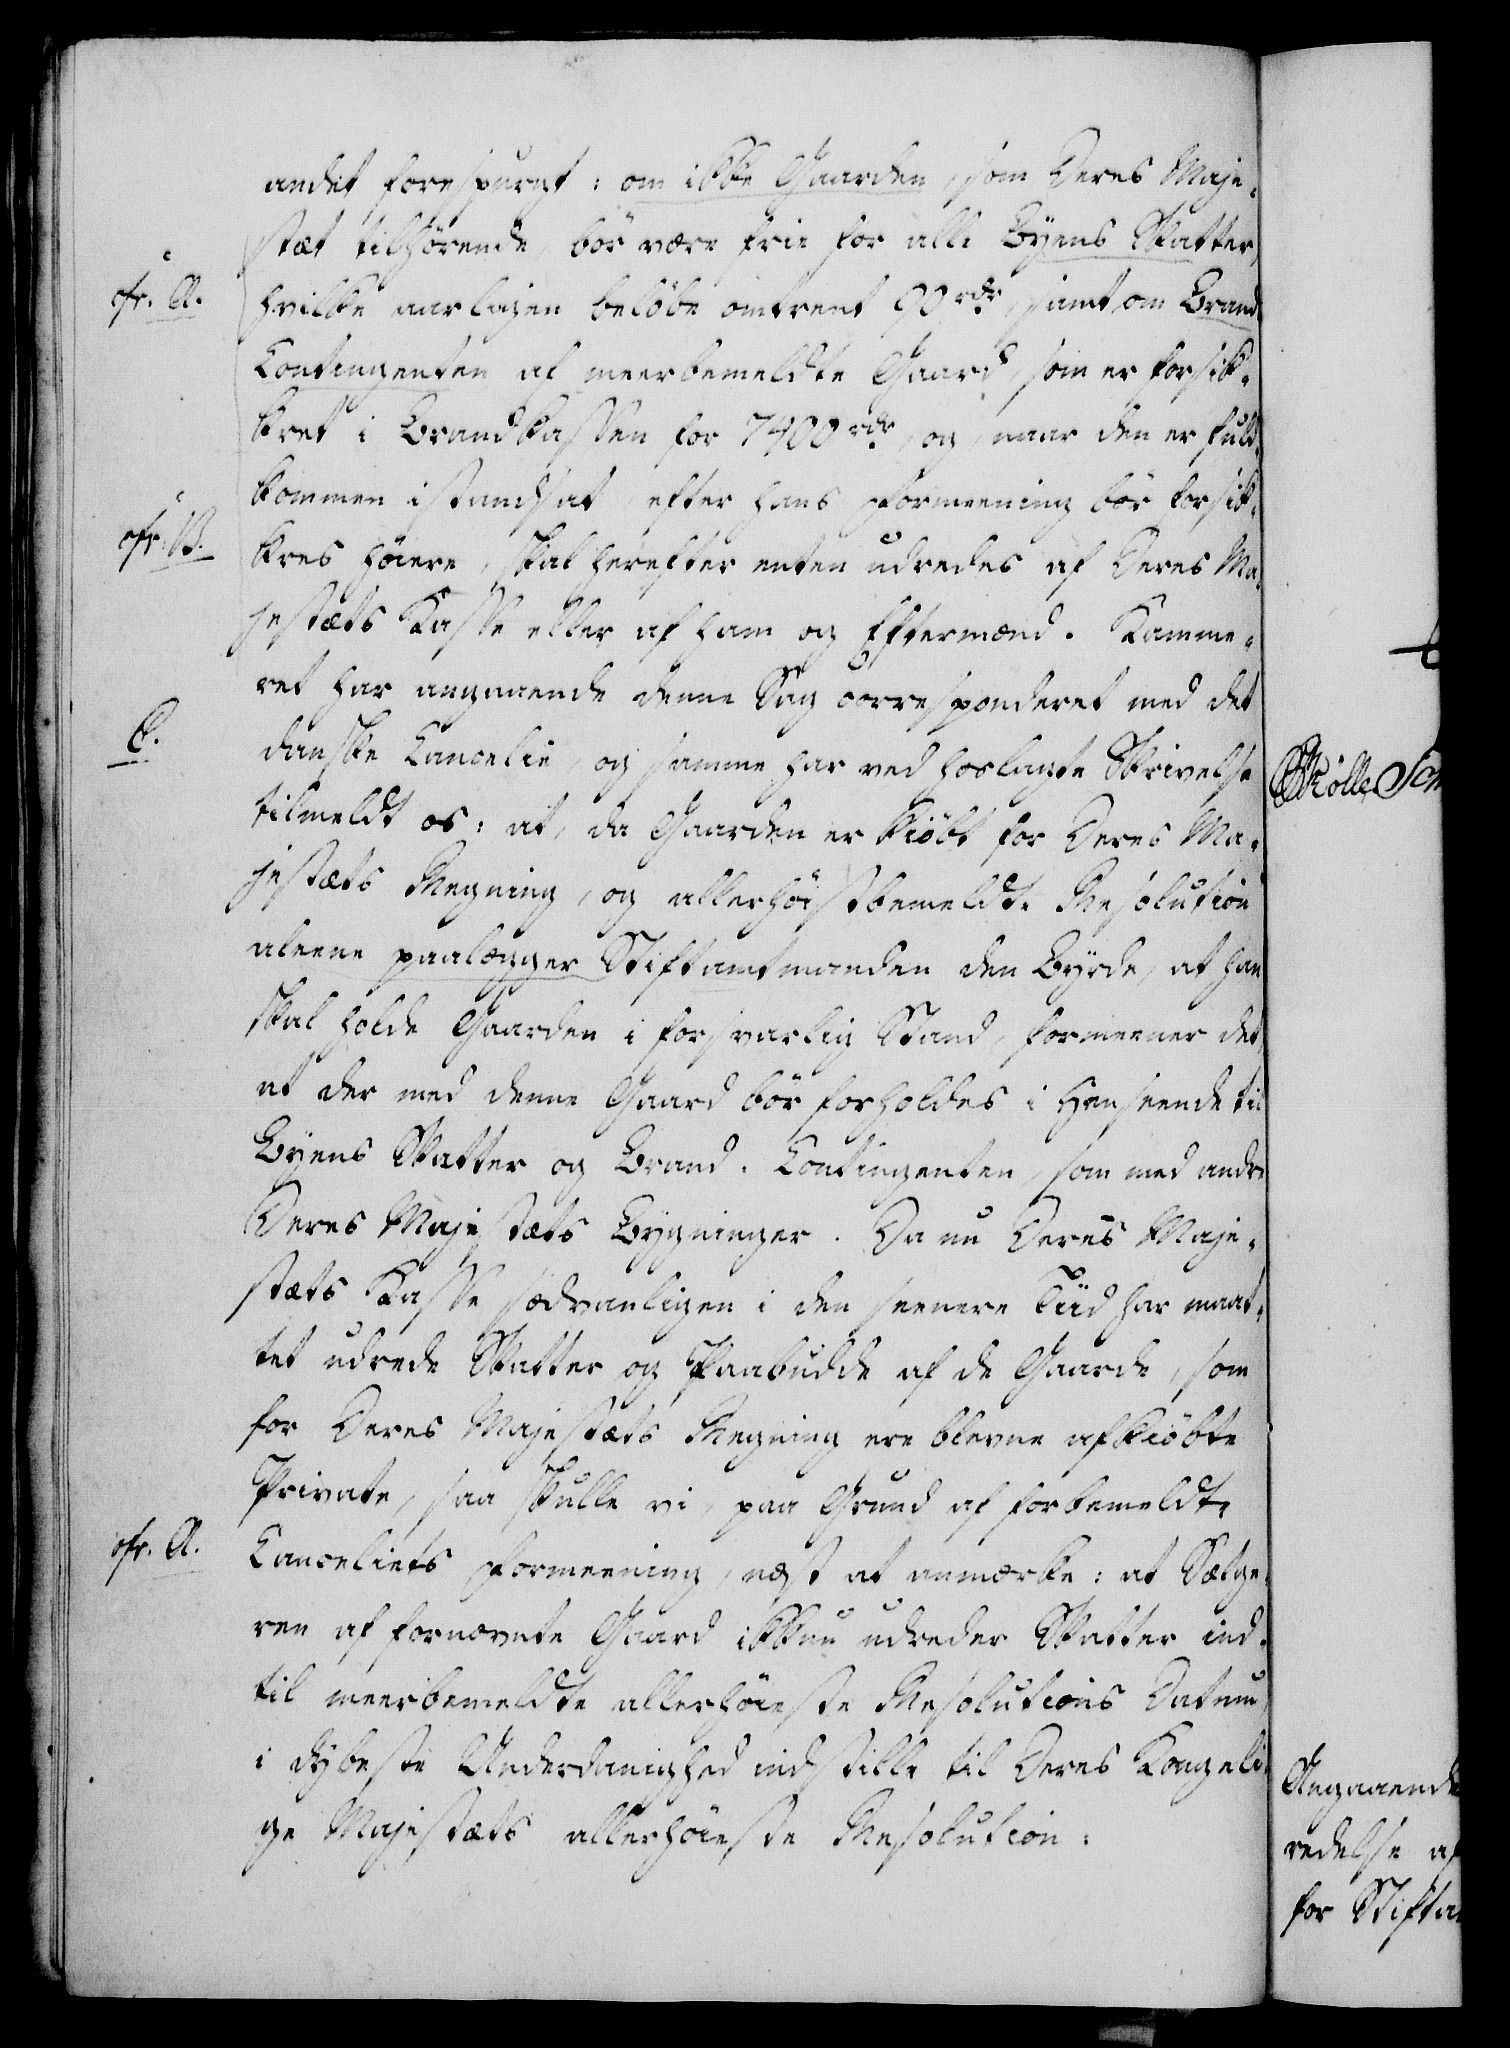 andet forespurgt: om ikke Gaarden, som Deres Maje-
stæt tilhørende, bör være frie for alle Byens Skatter,
cfr. A.
hvilke aarligen belöbe omtrent 90 rdr, samt om Brand
Contingenten af meerbemeldte Gaard, som er forsik-
kret i Brandkassen for 7400 rdr, og, naar den er fuld-
kommen istandsat, efter hans Formeening bör forsik-
cfr. B.
kres höiere, skal herefter enten udredes af Deres Ma-
jestæts Kasse eller af ham og Eftermænd. Kamme-
ret har angaaende denne Sag corresponderet med det
C.
danske Cancelie, og samme har ved hoslagte Skrivelse
tilmeldt os: at, da Gaarden er kiöbt for Deres Ma-
jestæts Regning, og allerhöistbemeldte Resolution
aleene paalægger Stiftamtmanden den Byrde, at han
skal holde Gaarden i forsvarlig Stand, formeener det,
at der med denne Gaard bör forholdes i Henseende til
Byens Skatter og Brand-Contingenten, som med andre
Deres Majestæts Bygninger. Da nu Deres Maje-
stæts Kasse sædvanligen i den seenere Tiid har maat-
tet udrede Skatter og Paabudde af de Gaarde, som
for Deres Majestæts Regning ere blevne afkiöbte
Private, saa skulle vi, paa Grund af forbemeldte
cfr. A.
Canceliets Formeening, næst at anmærke: at Sælge-
ren af fornævnte Gaard ikkun udreder Skatter ind-
til meerbemeldte allerhöieste Resolutions Datum,
i dybeste Underdanighed indstille til Deres Kongeli-
ge Majestæts allerhöieste Resolution:
Mölle
Angaaende
redelse af
for Stifta